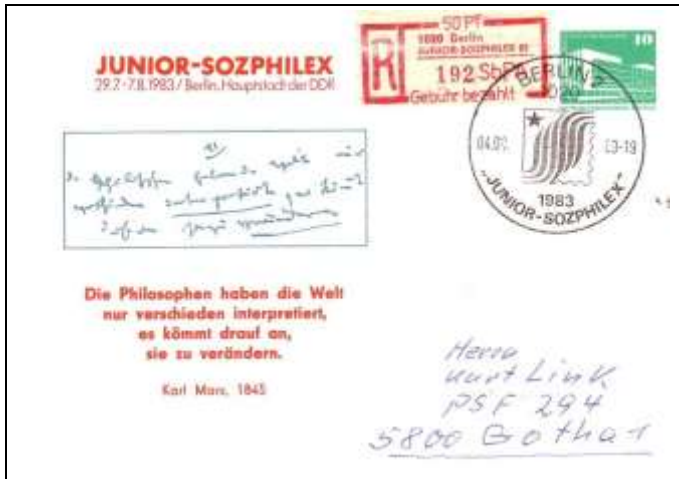 JUNIOR-SOZPHILEX
29.7.-7.8.1983 / Berlin, Hauptstadt der DDR
50 Pf
1080 Berlin
JUNIOR-SOZPHILEX 83
R
192
Gebühr bezahlt
10
BERLIN
1020
04.08. 83-19
1983
„JUNIOR-SOZPHILEX"
Die Philosophen haben die Welt
nur verschieden interpretiert,
es kömmt drauf an,
sie zu verändern.
Karl Marx, 1845
Herrn
Kurt Link
PSF 294
5800 Gotha 1